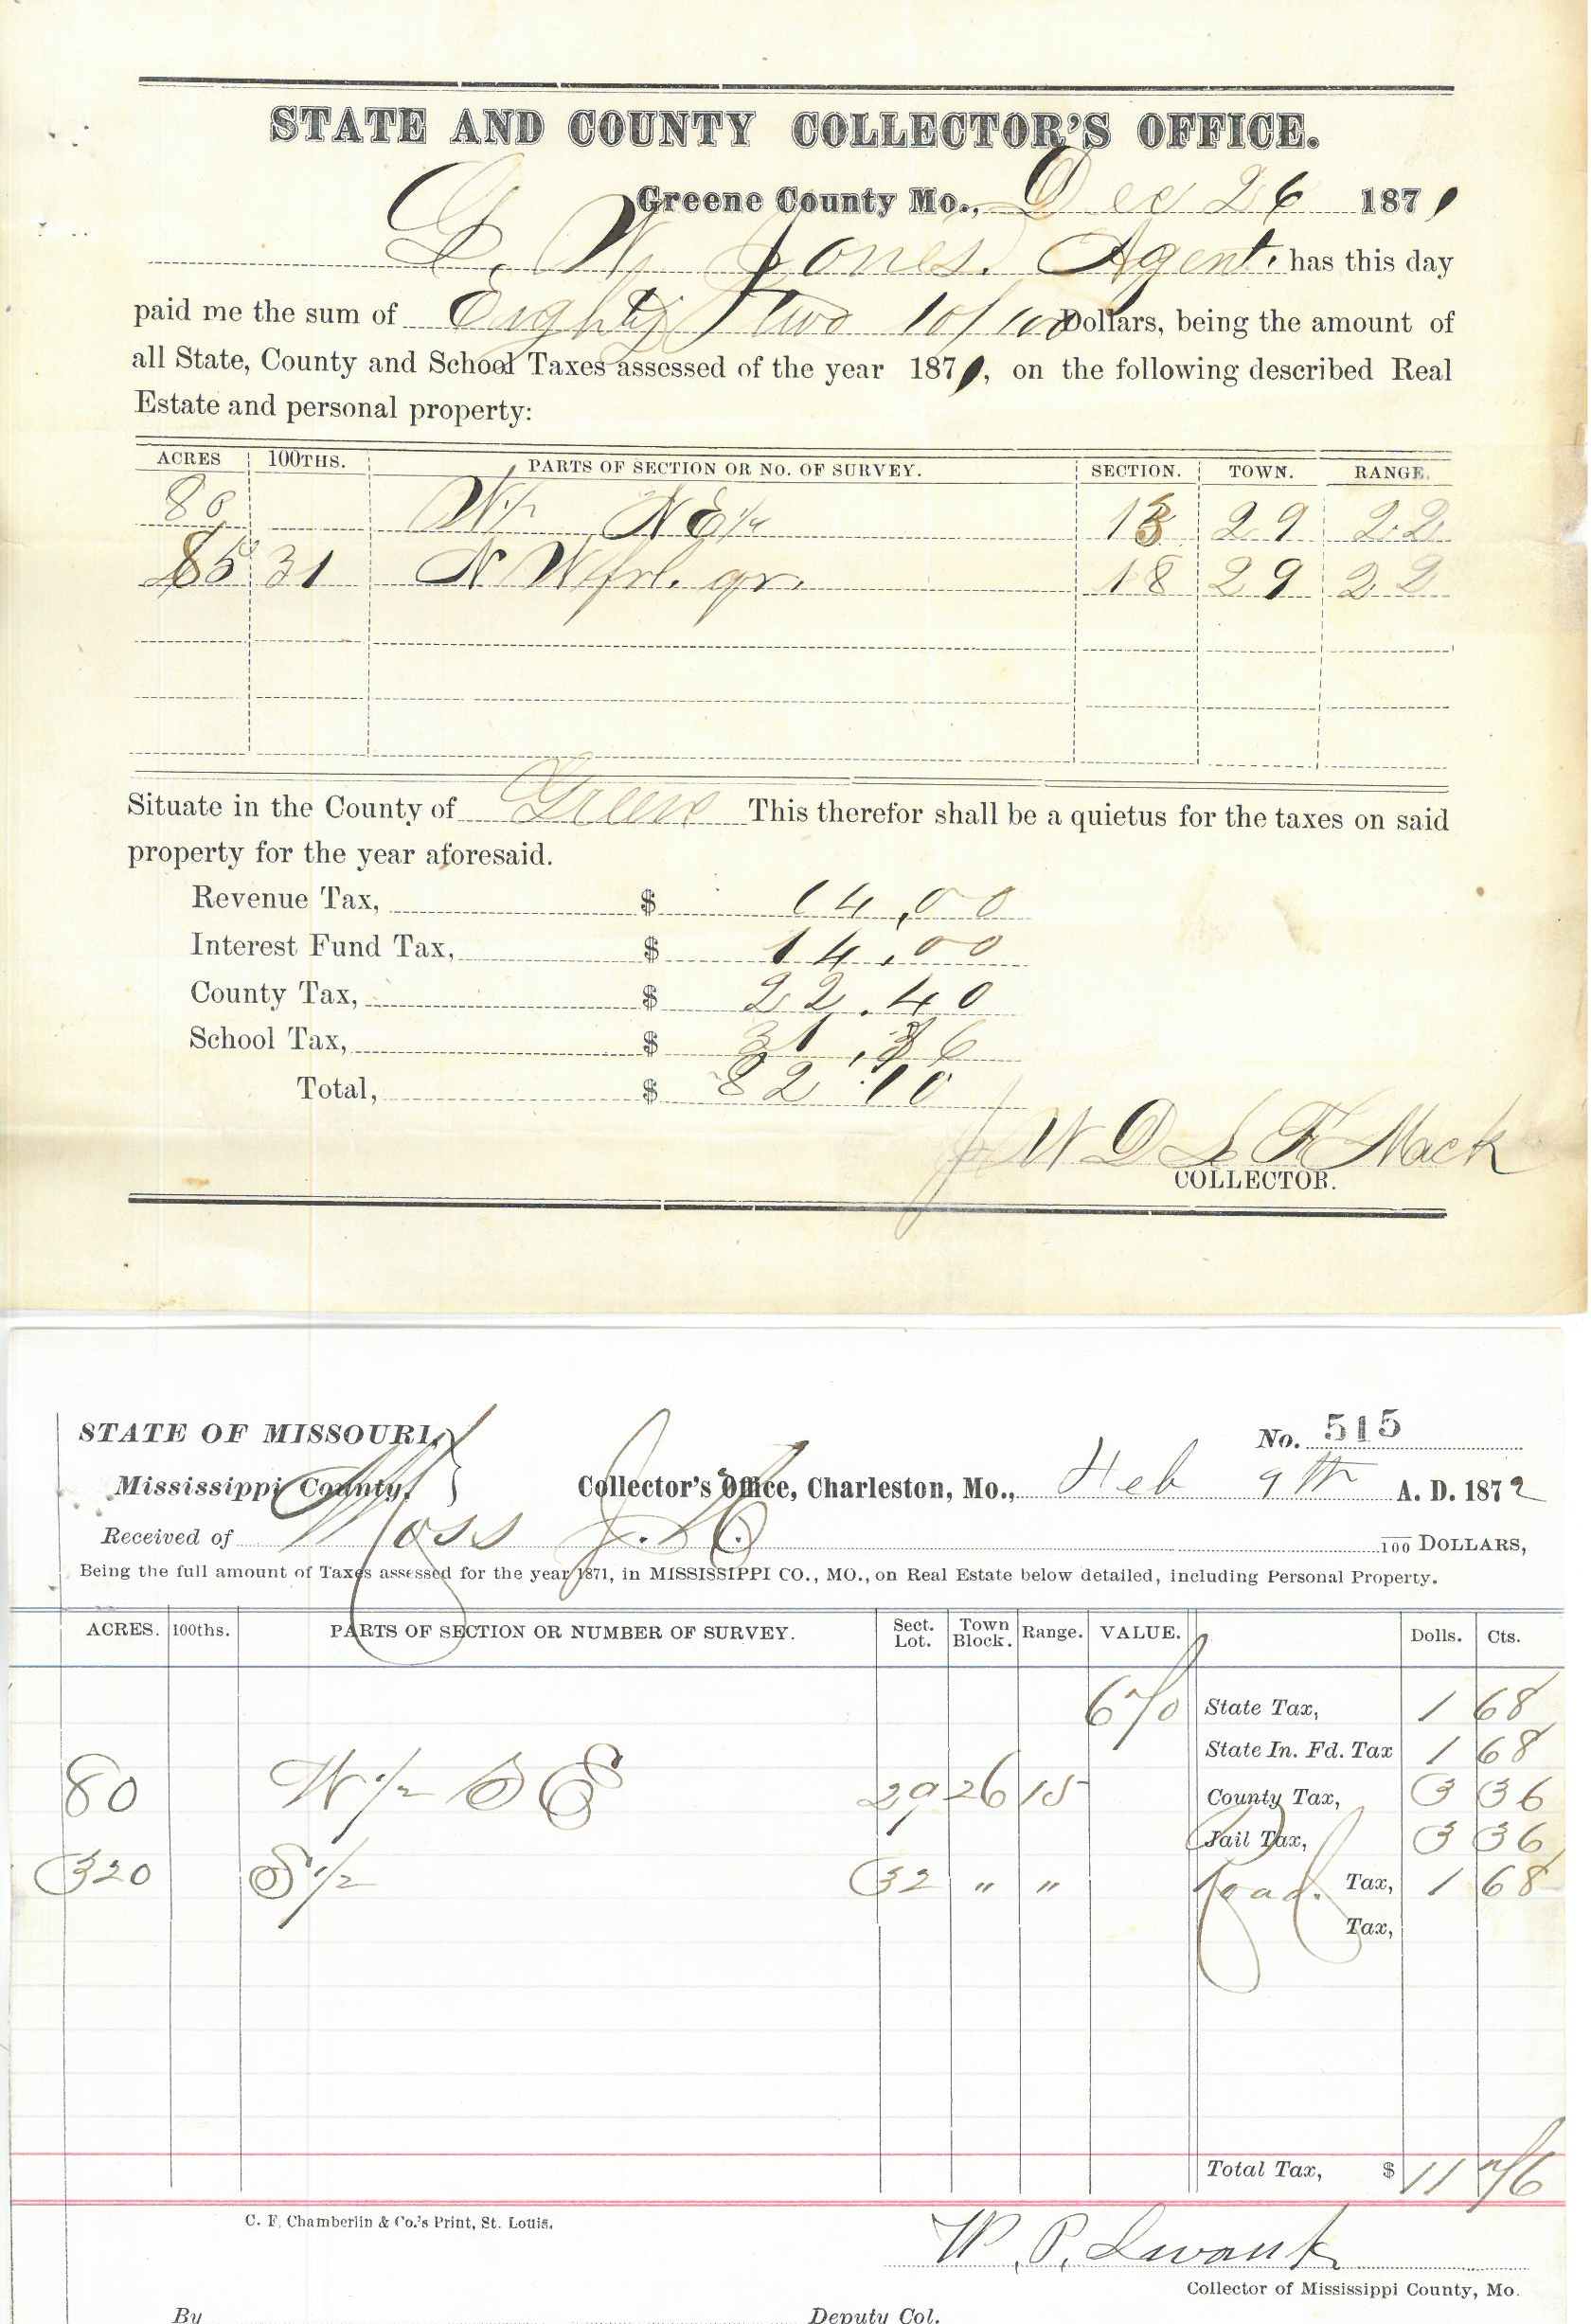 STATE AND COUNTY COLLECTOR'S OFFICE.
Greene County Mo., Dec 26 1871
G. W. Jones. Agent. has this day
paid me the sum of Eighty two 10/100 Dollars, being the amount of
all State, County and School Taxes assessed of the year 1871, on the following described Real
Estate and personal property:
ACRES 100THS. PARTS OF SECTION OR NO. OF SURVEY. SECTION. TOWN. RANGE.
80 W½ NE¼ 13 29 22
85 31 NW frl. qr. 18 29 22
Situate in the County of Greene This therefor shall be a quietus for the taxes on said
property for the year aforesaid.
Revenue Tax, $ 14.00
Interest Fund Tax, $ 14.00
County Tax, $ 22.40
School Tax, $ 31.
Total, $ 82.10
Mack
COLLECTOR.
STATE OF MISSOURI,
Mississippi County,
No. 515
Collector's Office, Charleston, Mo., Feb 9th A. D. 1872
Received of Moss J. H. 100 DOLLARS,
Being the full amount of Taxes assessed for the year 1871, in MISSISSIPPI CO., MO., on Real Estate below detailed, including Personal Property.
ACRES. 100ths. PARTS OF SECTION OR NUMBER OF SURVEY. Sect. Lot. Town Block. Range. VALUE. Dolls. Cts.
670 State Tax, 1 68
State In. Fd. Tax 1 68
80 W ½ S E 29 26 15 County Tax, 3 36
Jail Tax, 3 36
320 S ½ 32 " " Road. Tax, 1 68
Tax,
Total Tax, $ 11 76
C. F. Chamberlin & Co.'s Print, St. Louis.
W. P. Swank
Collector of Mississippi County, Mo.
By Deputy Col.